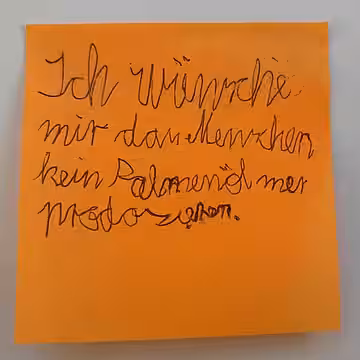 Ich wünsche
mir das Menschen
kein Palmenöl mer
prodozieren.